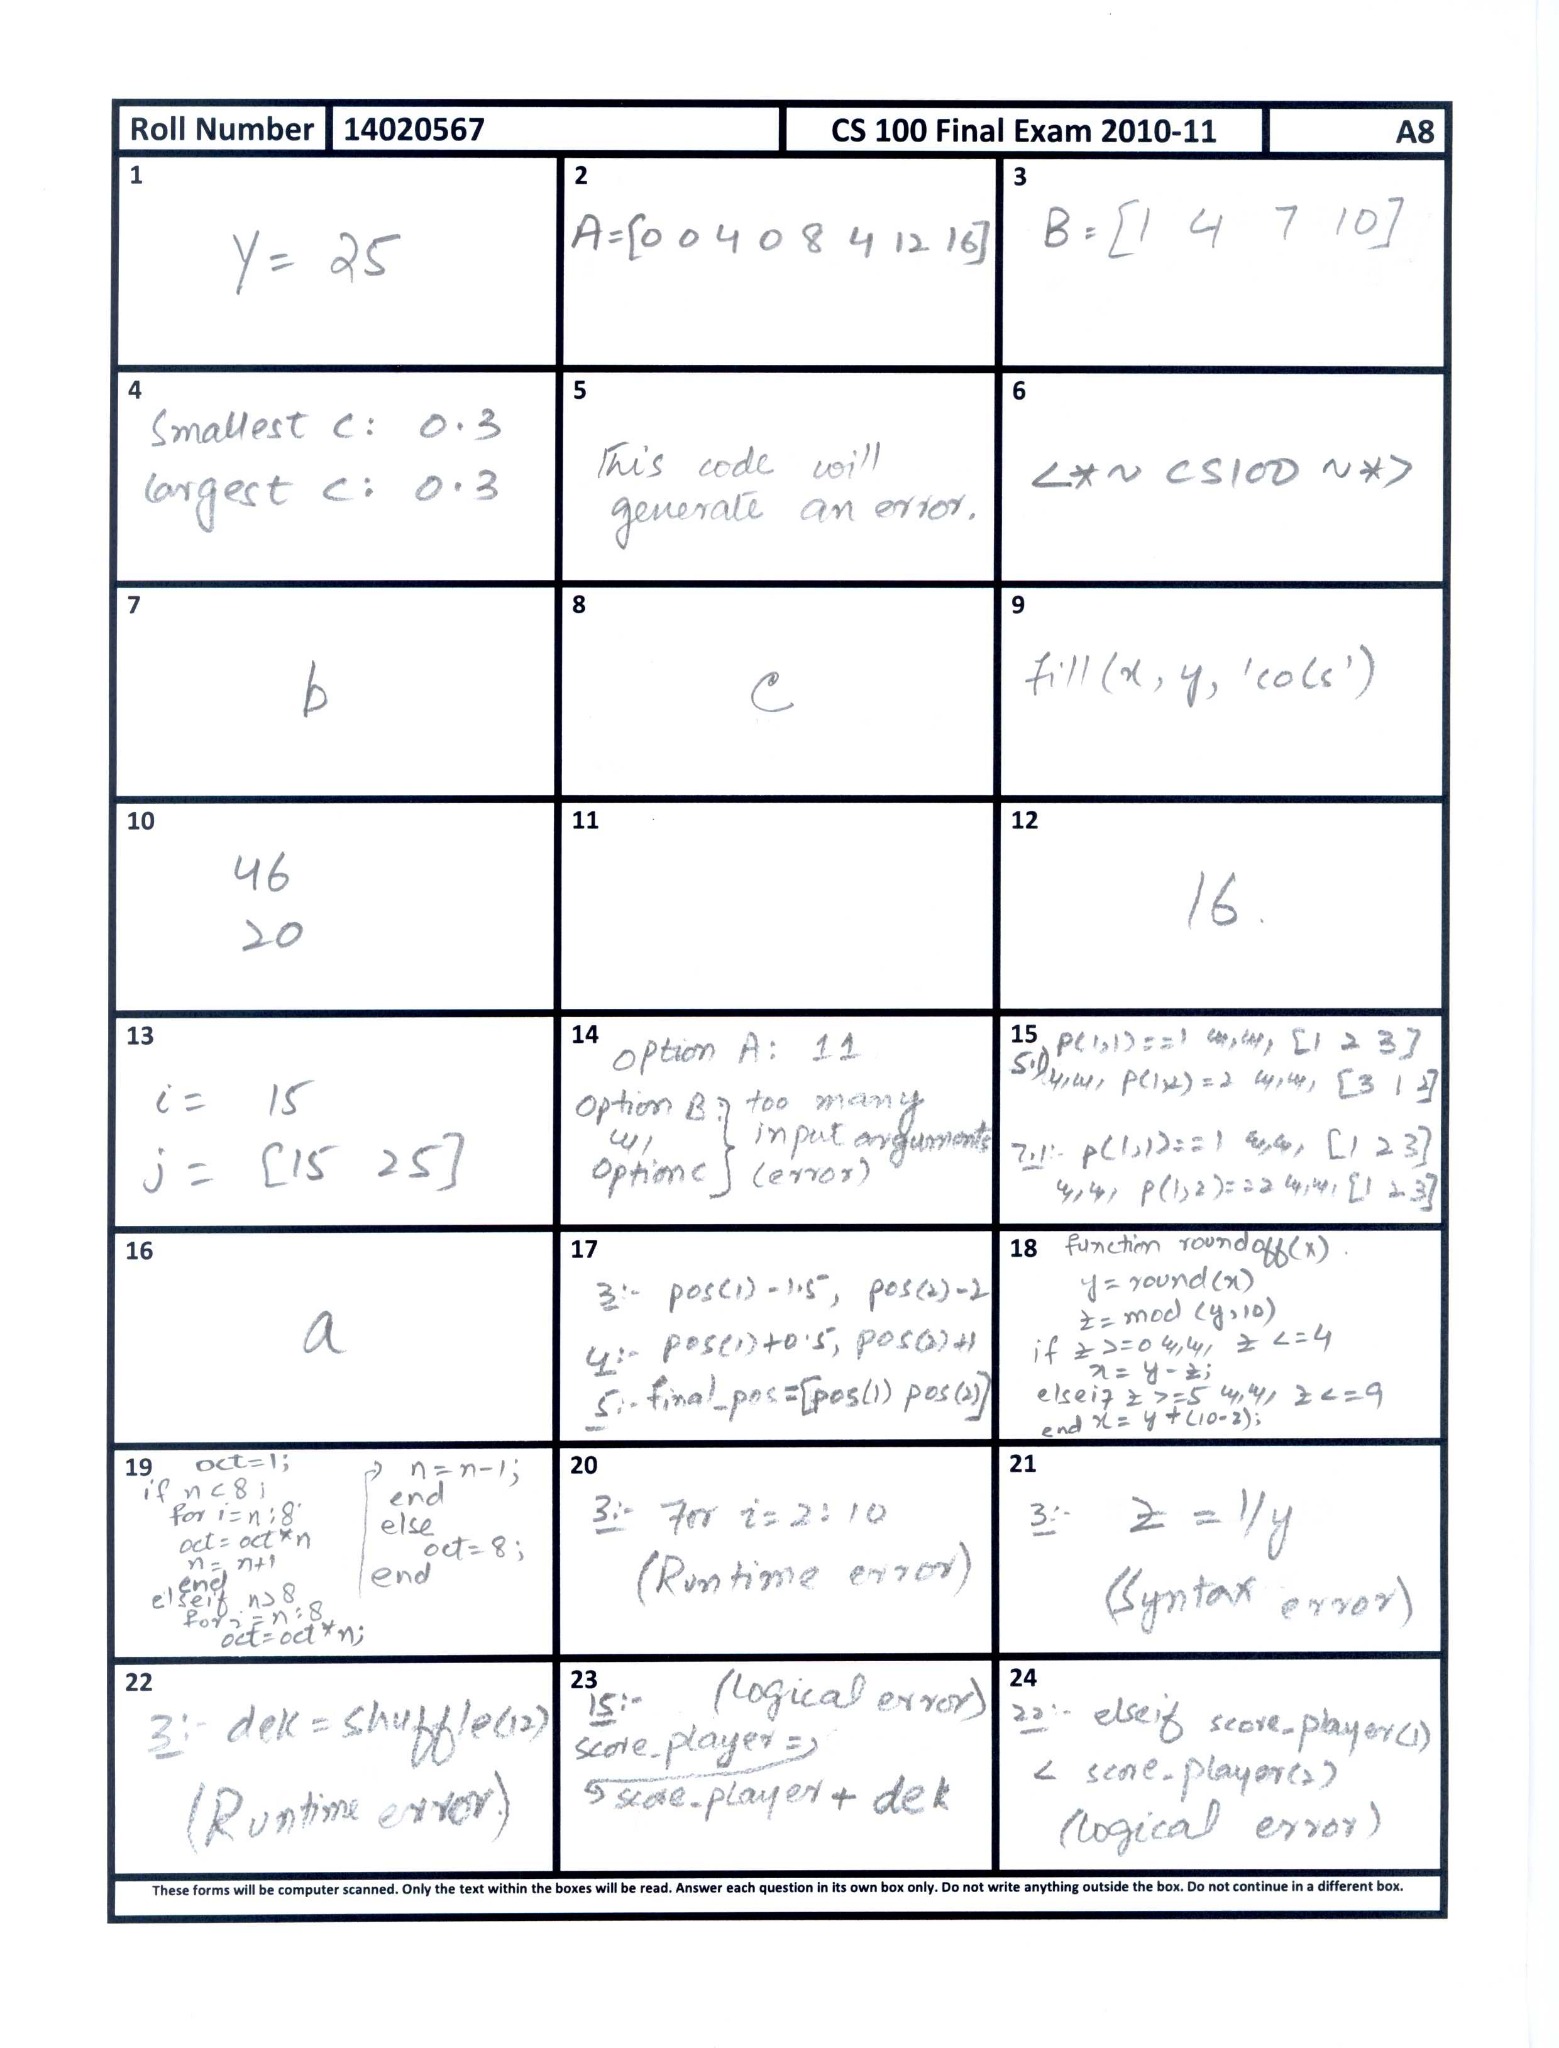 Roll Number 14020567 CS 100 Final Exam 2010-11 A8
1
Y = 25
2
A=[0 0 4 0 8 4 12 16]
3
B = [1 4 7 10]
4
Smallest c: 0.3
largest c: 0.3
5
This code will
generate an error.
6
<*~ CS100 ~*>
7
b
8
c
9
fill(x, y, 'cols')
10
46
20
11
12
16.
13
i = 15
j = [15 25]
14
option A: 11
option B } too many
input arguments
option C (error)
15
P(1,1)==1 [1 2 3]
P(1,2)=2 [3 1 2]
7.1:- P(1,1)==1 [1 2 3]
P(1,2)==2 [1 2 3]
16
a
17
3:- pos(1)-1.5, pos(2)-2
4:- pos(1)+0.5, pos(2)+1
5:- final_pos=[pos(1) pos(2)]
18
function roundoff(x).
y = round(x)
z = mod (y,10)
if z >=0 z <=4
x = y - z;
elseif z >=5 z <=9
end x = y + (10-z);
19
oct=1;
if n<8;
for i=n:8
oct=oct*n
n=n+1
end
elseif n>8
for i=n:8
oct=oct*n;
n=n-1;
end
else
oct=8;
end
20
3:- for i=2:10
(Runtime error)
21
3:- z = 1/y
(Syntax error)
22
3:- dek = shuffle(12)
(Runtime error)
23
15:- (logical error)
score_player =
score_player + dek
24
22:- elseif score_player(1)
< score_player(2)
(logical error)
These forms will be computer scanned. Only the text within the boxes will be read. Answer each question in its own box only. Do not write anything outside the box. Do not continue in a different box.